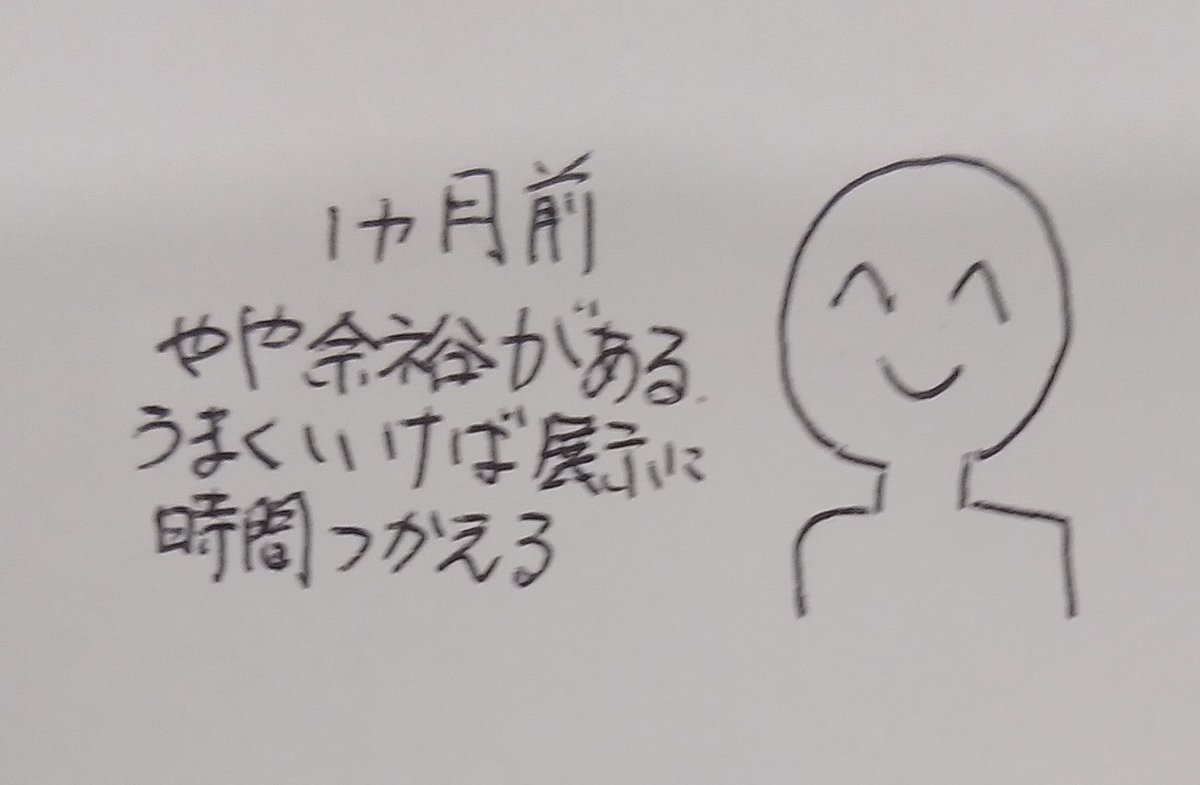 1ヶ月前
やや余裕がある.
うまくいけば展示に
時間つかえる